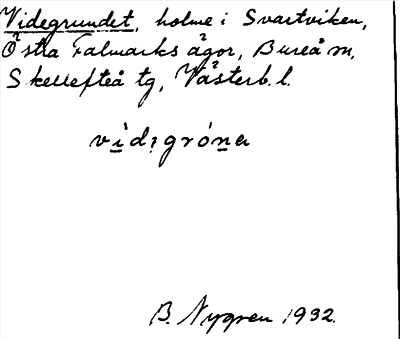 Videgrundet, holme i Svartviken,
Östra Falmarks ägor, Bureå sn,
Skellefteå tg, Västerb. l.
vid̦gróna
B. Nygren 1932.